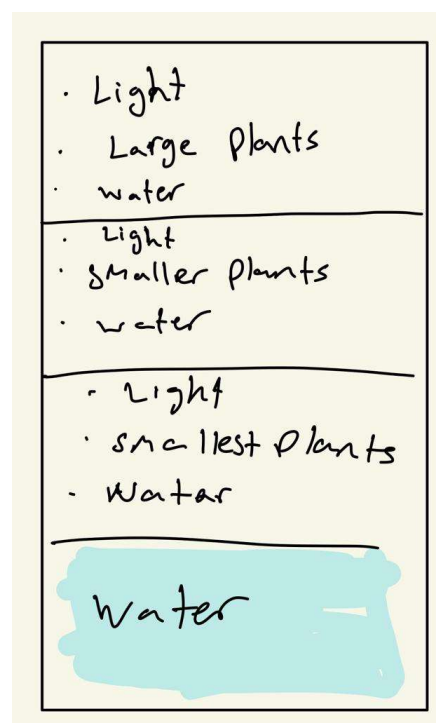 · Light
· Large Plants
· water
· Light
· smaller Plants
· water
· Light
· smallest Plants
· Watar
Water